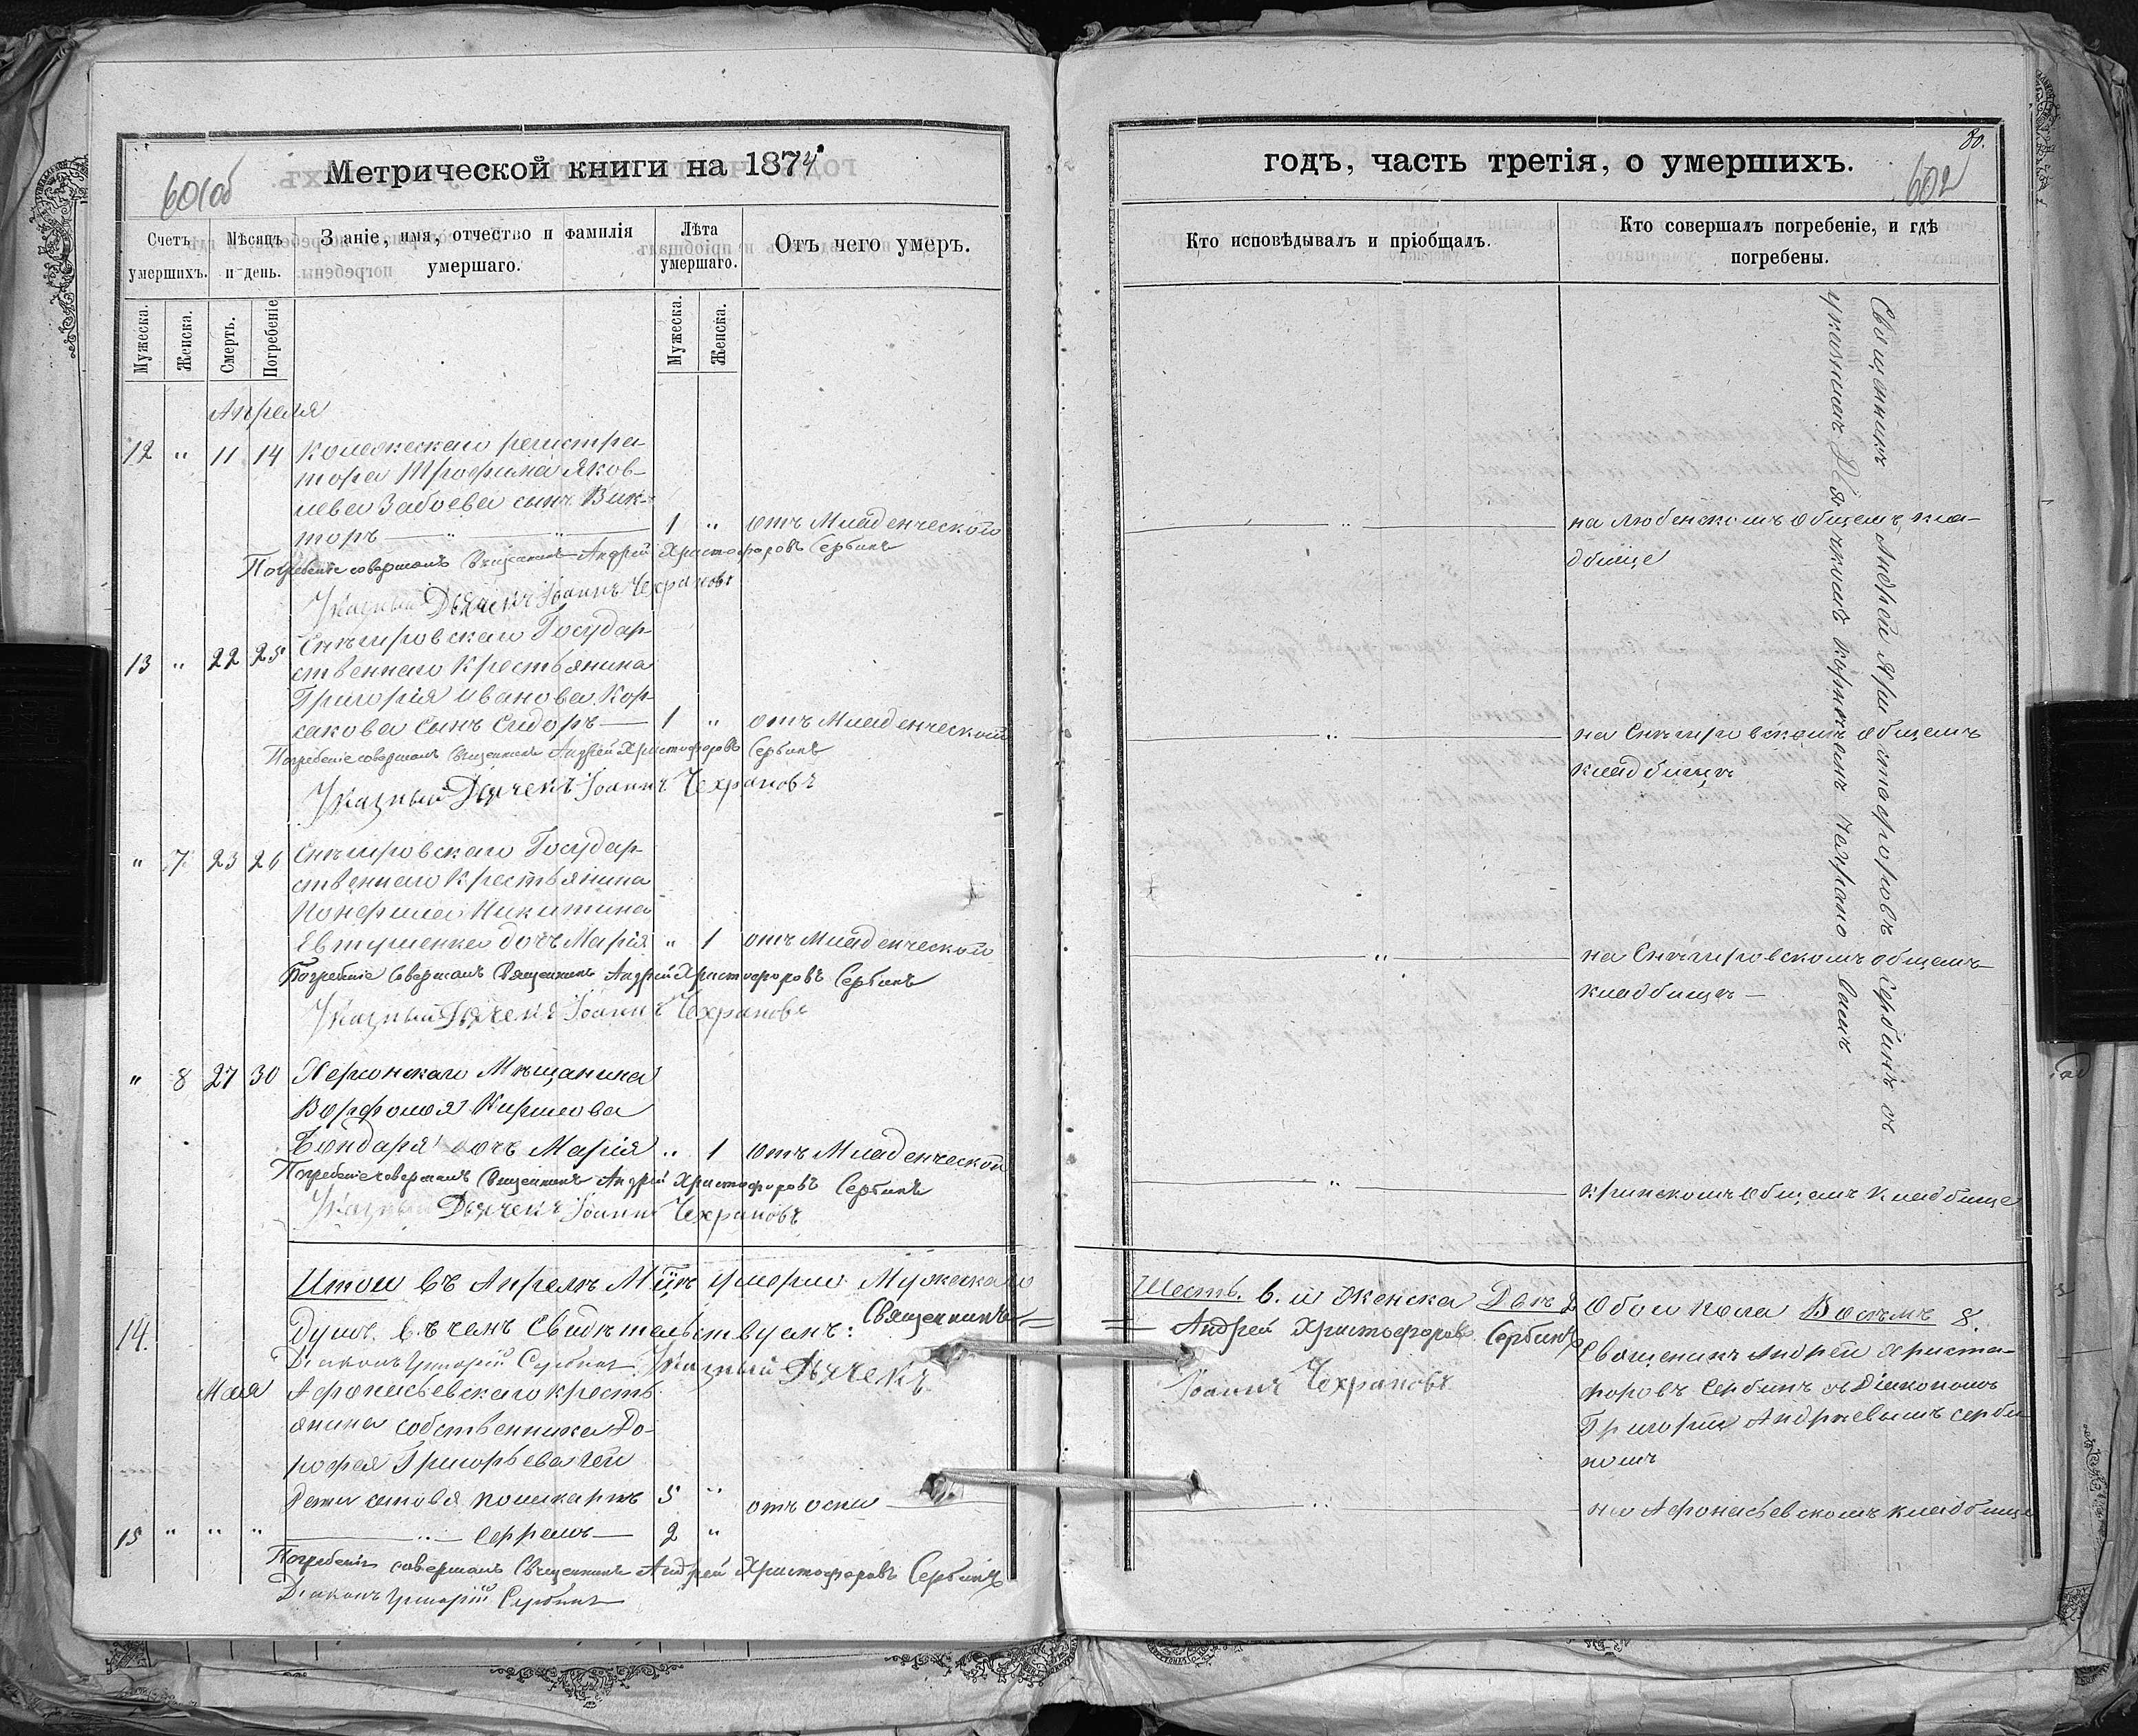 601об
Метрической книги на 1874
Счетъ умершихъ.
Мѣсяцъ и день.
Званіе, имя, отчество и фамилія умершаго.
Лѣта умершаго.
Отъ чего умеръ.
Мужеска.
Женска.
Смерть.
Погребеніе
Мужеска.
Женска.
Апреля
12 " 11 14 Колежскаго регистра-
тора Трофима Яков-
лева Забоева сынъ Вик-
торъ 1 " отъ Младенческой
Погребеніе совершалъ Священникъ Андрей Христофоровъ Сербинъ
Указный Дьячекъ Іоаннъ Чехрановъ
13 " 22 25 Снѣгировскаго Государ-
ственнаго Крестьянина
Григорія Иванова Кор-
сакова Сынъ Сидоръ 1 " отъ Младенческой
Погребеніе совершалъ Священникъ Андрей Христофоровъ Сербинъ
Указный Дьячекъ Іоаннъ Чехрановъ
" 7 23 26 Снѣгировскаго Государ-
ственнаго Крестьянина
Никитина
Евтушенка дочь Марія " 1 отъ Младенческой
Погребеніе Совершалъ Священникъ Андрей Христофоровъ Сербинъ
Указный Дьячекъ Іоаннъ Чехрановъ
" 8 27 30 Херсонскаго Мѣщанина
Кирилова
Бондаря дочь Марія " 1 отъ Младенческой
Погребеніе совершалъ Священникъ Андрей Христофоровъ Сербинъ
Указный Дьячекъ Іоаннъ Чехрановъ
Итого въ Апрелѣ М умерло Мужескаго
14. душъ. въ чемъ Свидѣтельствуемъ: Священникъ
Діаконъ Григорій Сербинъ Указный Дьячекъ
Мая Афонасьевскаго кресть
янина собственника До-
рофея Григорьева
Дети сыновя 5 " отъ оспы
15 " " " 2 "
Погребеніе совершалъ Священникъ Андрей Христофоровъ Сербинъ
Діаконъ Григорій Сербинъ
30.
602
годъ, часть третія, о умершихъ.
Кто исповѣдывалъ и пріобщалъ.
Кто совершалъ погребеніе, и гдѣ погребены.
Священникъ Андрей Христофоровъ Сербинъ съ
указнымъ Дьячкомъ
на Любенскомъ общемъ кла-
дбище
на Снѣгировскомъ общемъ
кладбищѣ
на Снѣгировскомъ общемъ
кладбищѣ —
кринскомъ общемъ Кладбище
Шесть. 6. и Женска Двѣ 2 Обои пола Восемь 8.
Андрей Христофоровъ Сербинъ
Іоаннъ Чехрановъ
Священикъ Андрей Христо-
форовъ Сербинъ съ Діакономъ
Григорій Андрѣевымъ серби
номъ
на Афонасьевскомъ кладбище